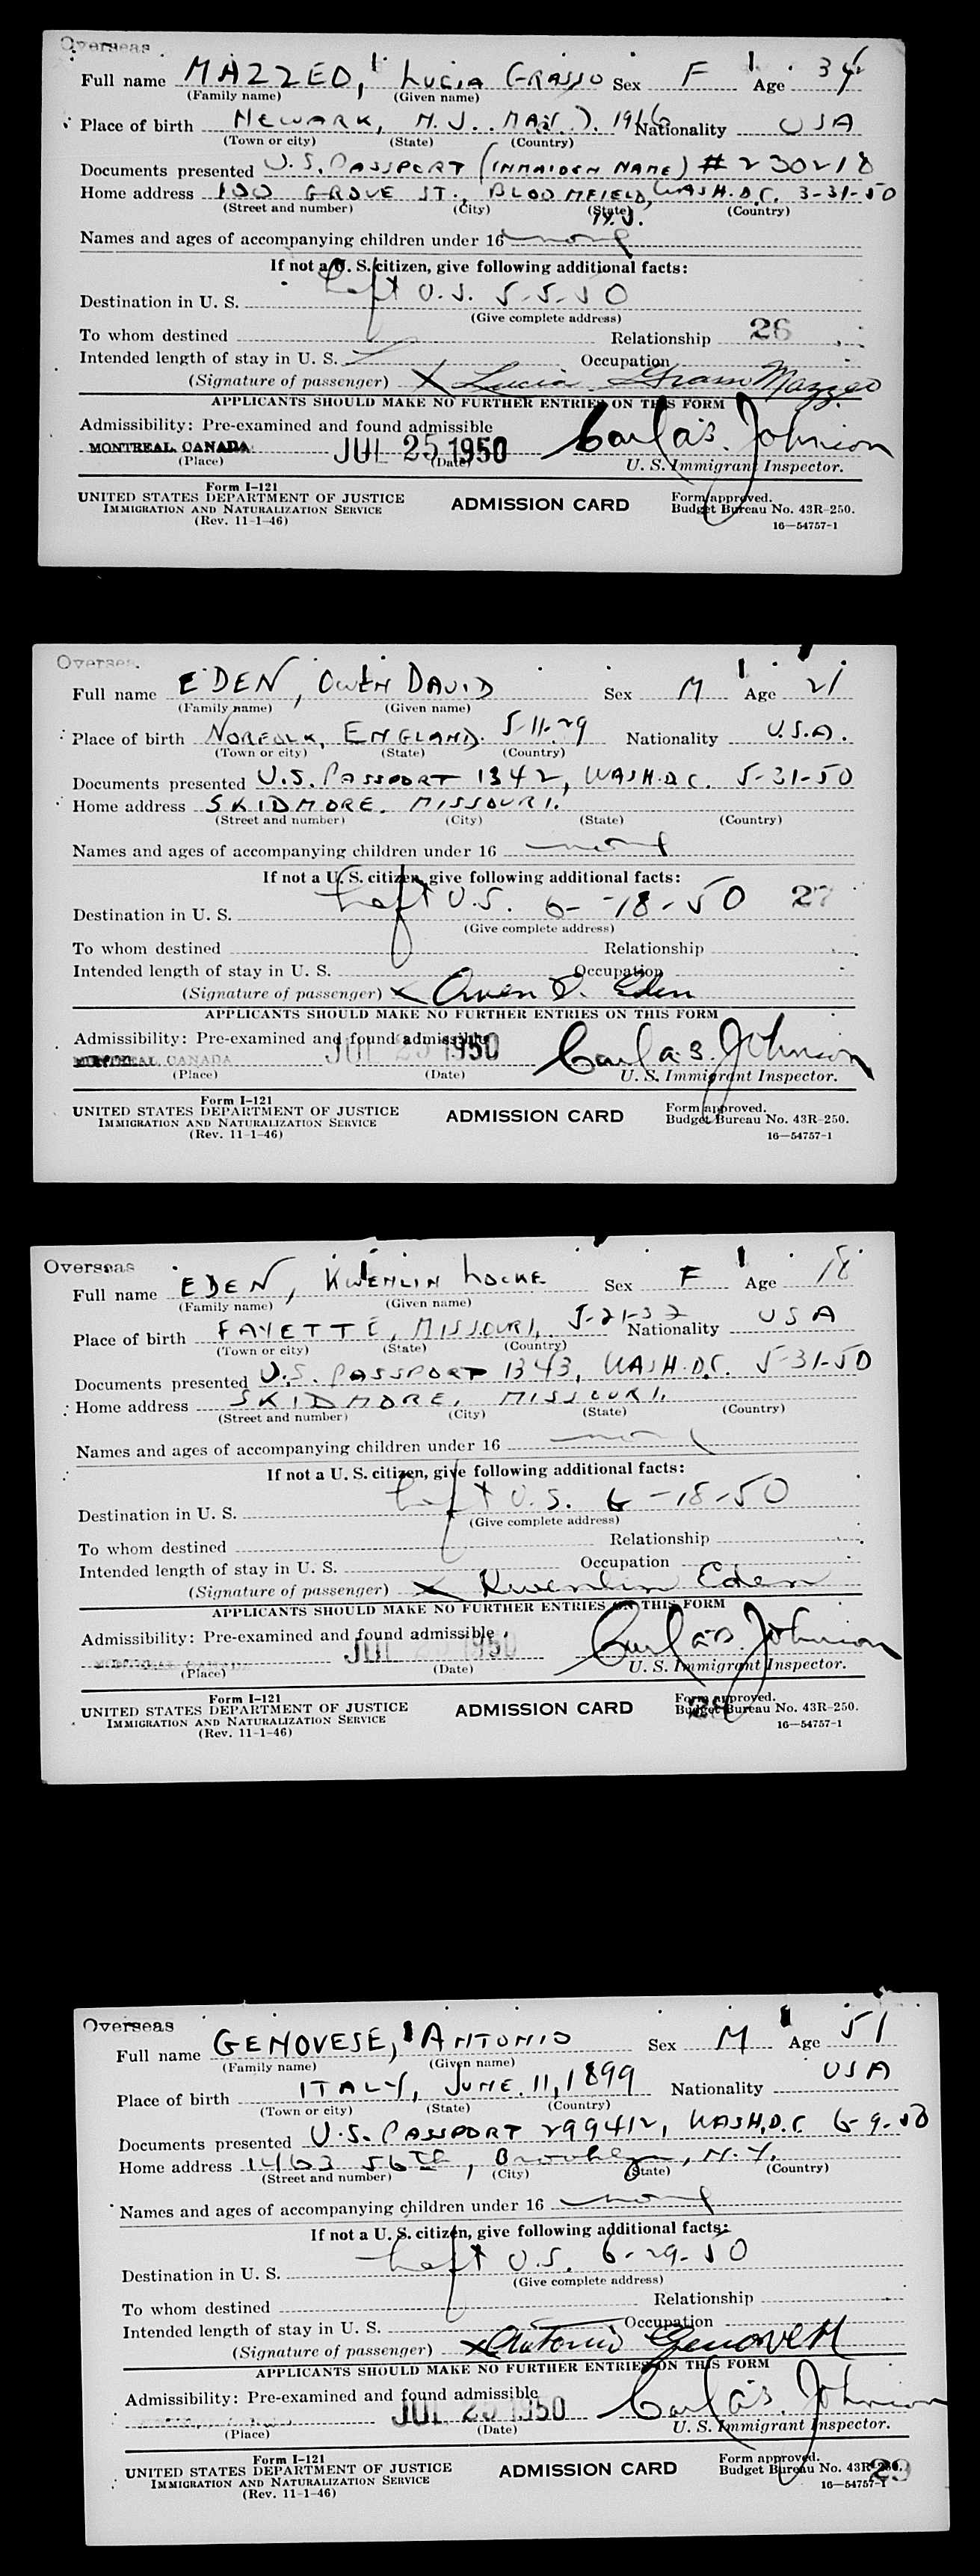 Overseas
Full name MAZZEO, LUCIA GRASSO Sex F Age 34
(Family name) (Given name)
Place of birth NEWARK, N.J. MAR. 7. 1916 Nationality USA
(Town or city) (State) (Country)
Documents presented U.S. PASSPORT (IN MAIDEN NAME) # 230218
Home address 100 GROVE ST., BLOOMFIELD, WASH.D.C. 3-31-50
(Street and number) (City) (State) (Country)
N.J.
Names and ages of accompanying children under 16 none
If not a U. S. citizen, give following additional facts:
Left U.S. 5-5-50
Destination in U. S.
(Give complete address)
To whom destined Relationship 26
Intended length of stay in U. S. Occupation
(Signature of passenger) X Lucia Grasso Mazzeo
APPLICANTS SHOULD MAKE NO FURTHER ENTRIES ON THIS FORM
Admissibility: Pre-examined and found admissible
MONTREAL, CANADA JUL 25 1950 Carl A. S. Johnson
(Place) (Date) U. S. Immigrant Inspector.
Form I-121
UNITED STATES DEPARTMENT OF JUSTICE
IMMIGRATION AND NATURALIZATION SERVICE
(Rev. 11-1-46)
ADMISSION CARD
Form approved.
Budget Bureau No. 43R-250.
16—54757-1
Overseas
Full name EDEN, OWEN DAVID Sex M Age 21
(Family name) (Given name)
Place of birth NORFOLK, ENGLAND. 5-11-29 Nationality U.S.A.
(Town or city) (State) (Country)
Documents presented U.S. PASSPORT 1342, WASH.D.C. 5-31-50
Home address SKIDMORE, MISSOURI.
(Street and number) (City) (State) (Country)
Names and ages of accompanying children under 16 none
If not a U. S. citizen, give following additional facts:
Left U.S. 6-18-50 27
Destination in U. S.
(Give complete address)
To whom destined Relationship
Intended length of stay in U. S. Occupation
(Signature of passenger) X Owen D. Eden
APPLICANTS SHOULD MAKE NO FURTHER ENTRIES ON THIS FORM
Admissibility: Pre-examined and found admissible
MONTREAL, CANADA JUL 25 1950 Carl A. S. Johnson
(Place) (Date) U. S. Immigrant Inspector.
Form I-121
UNITED STATES DEPARTMENT OF JUSTICE
IMMIGRATION AND NATURALIZATION SERVICE
(Rev. 11-1-46)
ADMISSION CARD
Form approved.
Budget Bureau No. 43R-250.
16—54757-1
Overseas
Full name EDEN, KWENLIN LOCKE Sex F Age 18
(Family name) (Given name)
Place of birth FAYETTE, MISSOURI, 5-21-32 Nationality USA
(Town or city) (State) (Country)
Documents presented U.S. PASSPORT 1343, WASH.D.C. 5-31-50
Home address SKIDMORE, MISSOURI.
(Street and number) (City) (State) (Country)
Names and ages of accompanying children under 16 none
If not a U. S. citizen, give following additional facts:
Left U.S. 6-18-50
Destination in U. S.
(Give complete address)
To whom destined Relationship
Intended length of stay in U. S. Occupation
(Signature of passenger) X Kwenlin Eden
APPLICANTS SHOULD MAKE NO FURTHER ENTRIES ON THIS FORM
Admissibility: Pre-examined and found admissible
JUL 1950 Carl A. S. Johnson
(Place) (Date) U. S. Immigrant Inspector.
Form I-121
UNITED STATES DEPARTMENT OF JUSTICE
IMMIGRATION AND NATURALIZATION SERVICE
(Rev. 11-1-46)
ADMISSION CARD
Form approved.
Budget Bureau No. 43R-250.
16—54757-1
Overseas
Full name GENOVESE, ANTONIO Sex M Age 51
(Family name) (Given name)
Place of birth ITALY, JUNE. 11, 1899 Nationality USA
(Town or city) (State) (Country)
Documents presented U.S. PASSPORT 299412, WASH.D.C. 6-9-50
Home address 1463 56th, Brooklyn, N.Y.
(Street and number) (City) (State) (Country)
Names and ages of accompanying children under 16 none
If not a U. S. citizen, give following additional facts:
Left U.S. 6-29-50
Destination in U. S.
(Give complete address)
To whom destined Relationship
Intended length of stay in U. S. Occupation
(Signature of passenger) X Antonio Genovese
APPLICANTS SHOULD MAKE NO FURTHER ENTRIES ON THIS FORM
Admissibility: Pre-examined and found admissible
JUL 25 1950 Carl A. S. Johnson
(Place) (Date) U. S. Immigrant Inspector.
Form I-121
UNITED STATES DEPARTMENT OF JUSTICE
IMMIGRATION AND NATURALIZATION SERVICE
(Rev. 11-1-46)
ADMISSION CARD
Form approved.
Budget Bureau No. 43R-250.
16—54757-1
29